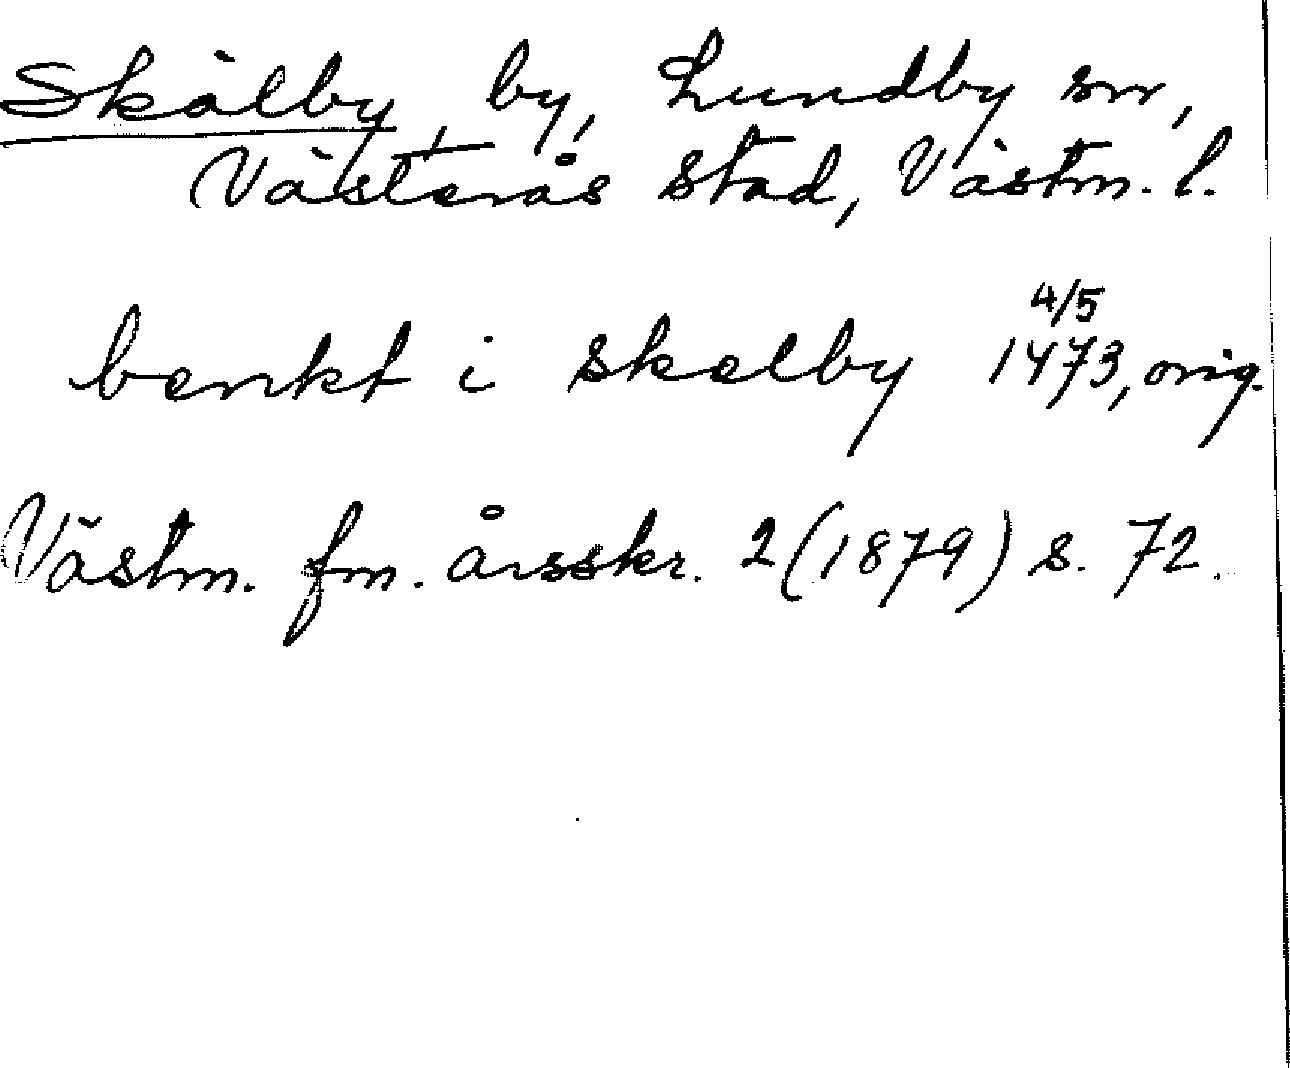 Skälby, by, Lundby sn,
Västerås stad, Västm. l.
benkt i skelby 4/5 1473, orig.
Västm. fm. årsskr. 2 (1879) s. 72.